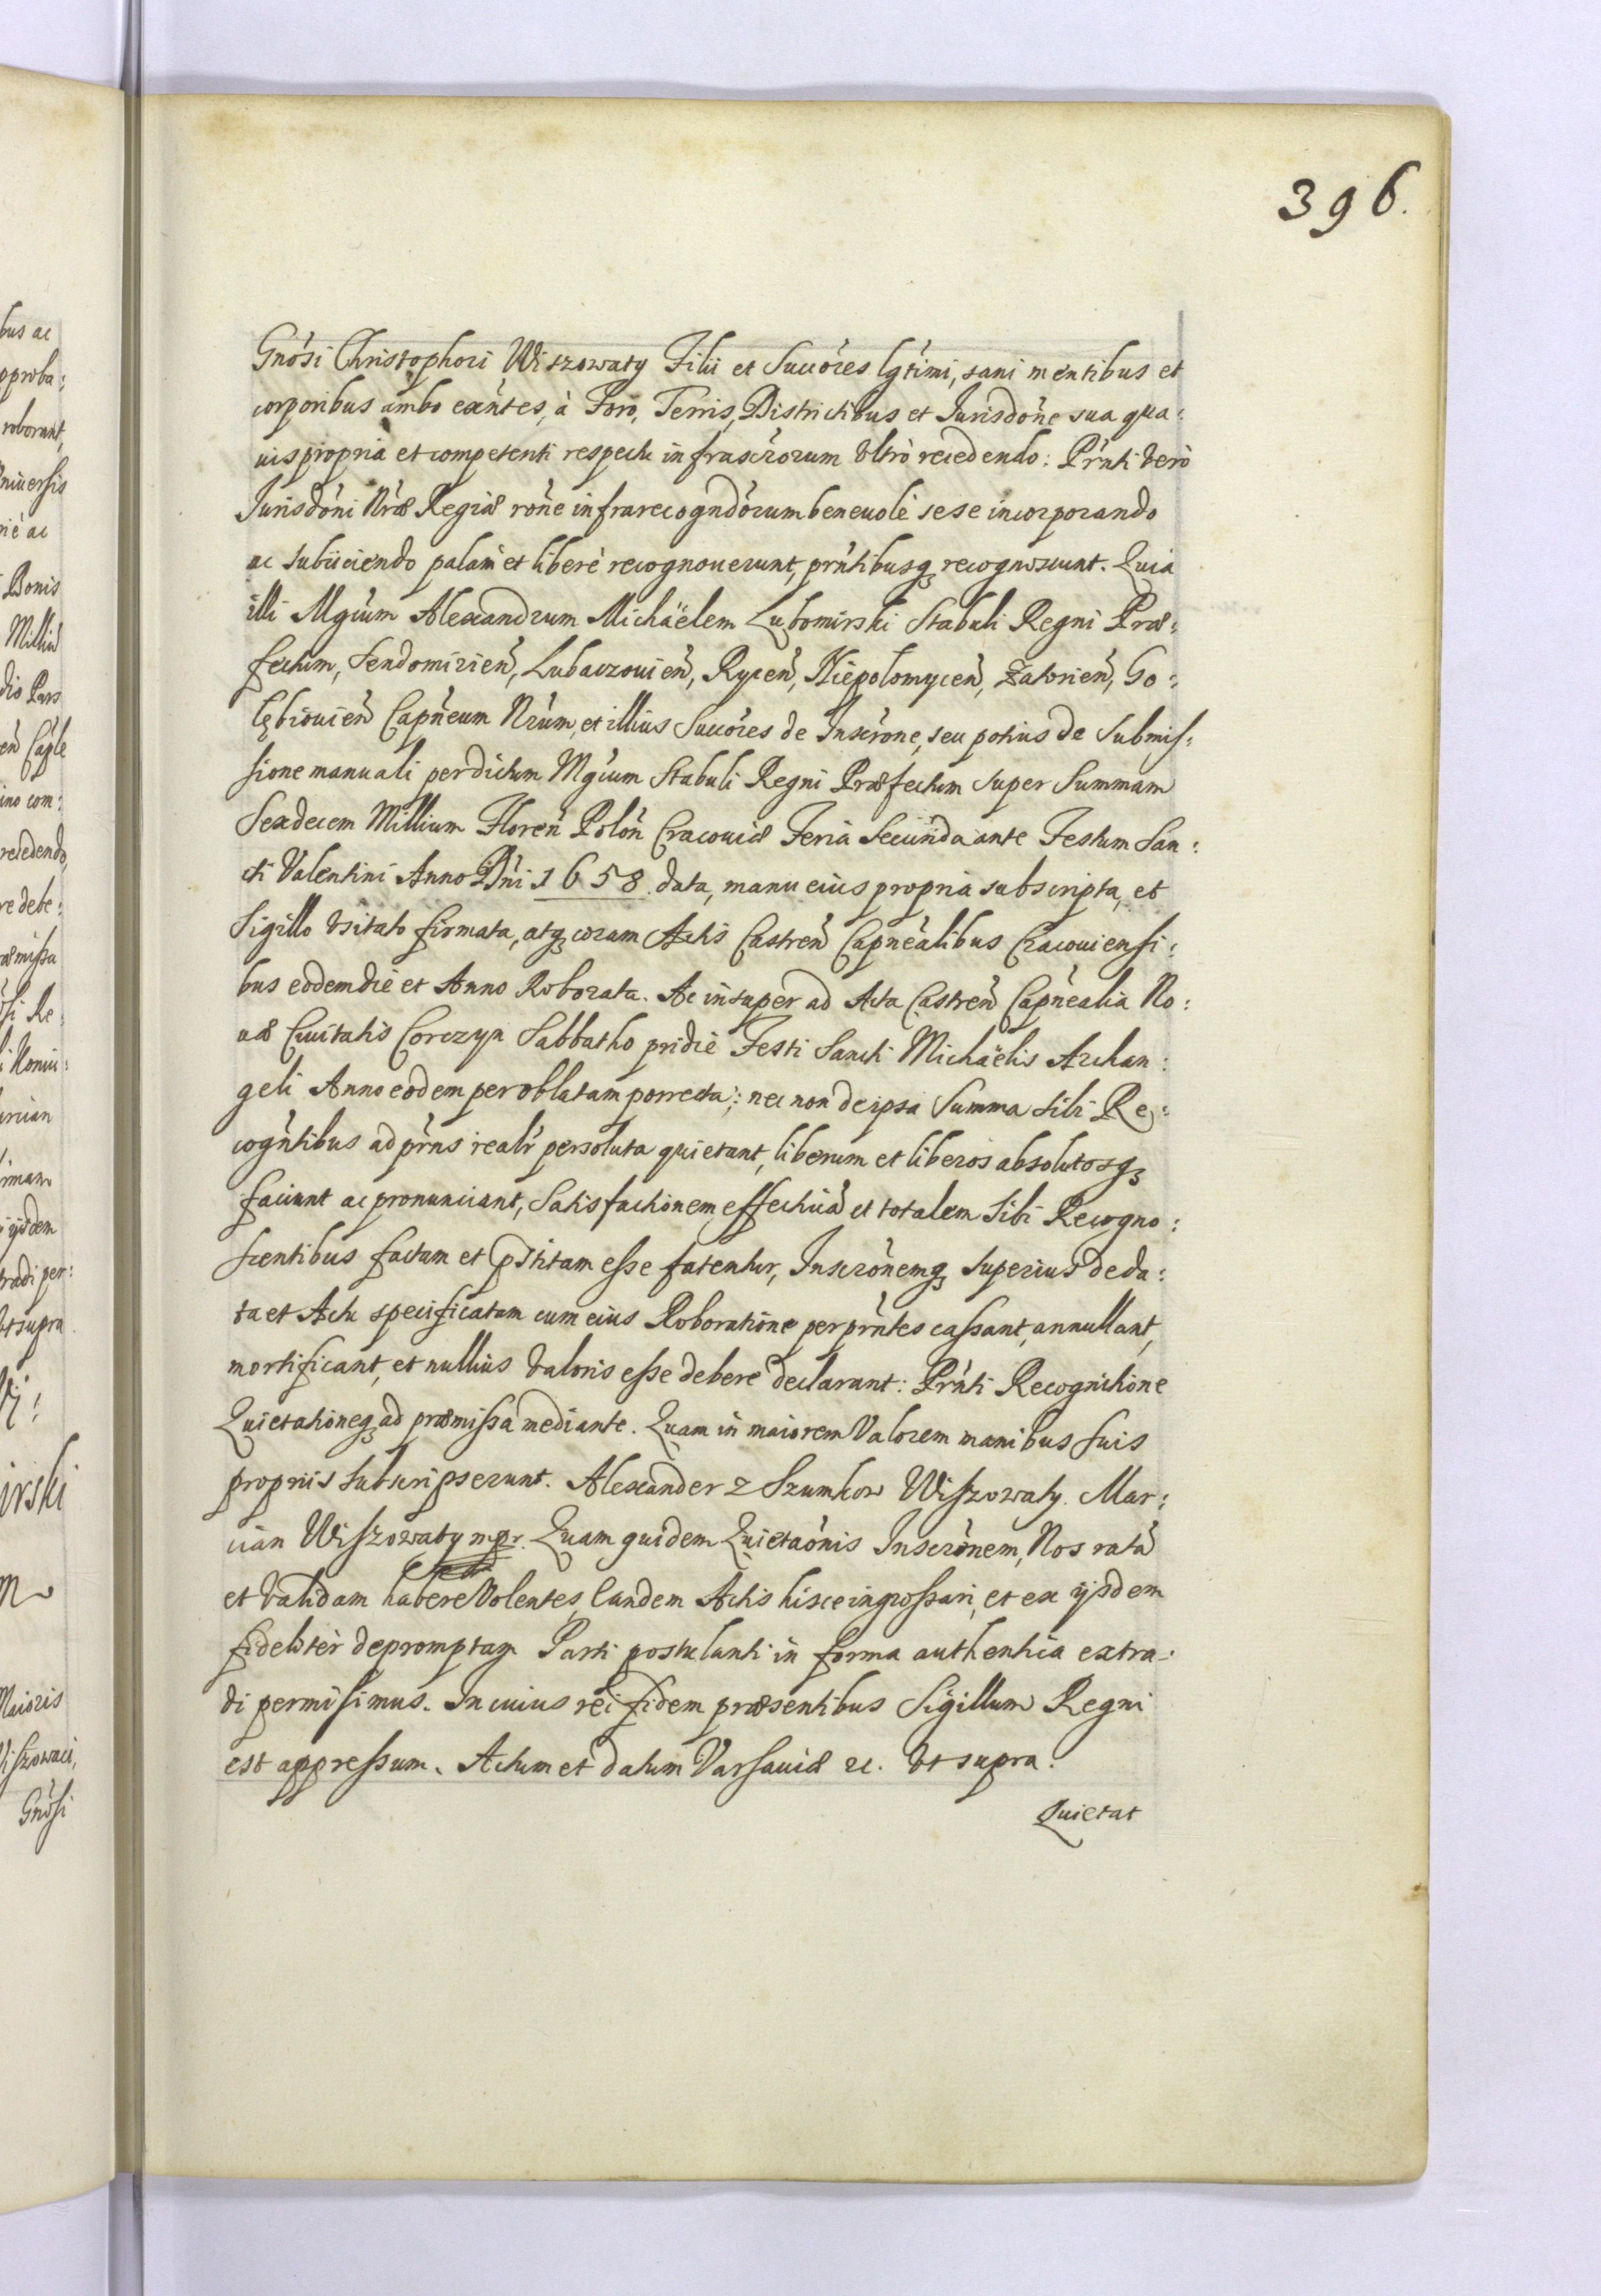 396.
Gnosi Christophori Wiszowaty Filii et Succores lgtimi, sani mentibus et
corporibus ambo exntes, à Foro, Terris, Districtibus et Jurisdone sua qua:
uis propria et competenti respectu infrascrorum Vltrò recedendo: Prnti Verò
Jurisdoni Nræ Regiæ rone infrarecogndorum beneuolè sese incorporando
ac subijciendo palam et liberè recognouerunt, prntibusq recognoscunt. Quia
illi Mgcum Alexandrum Michäelem Lubomirski Stabuli Regni Præ:
fectum, Sendomirien, Lubaczouien, Rycen, Niepolomycen, Zatorien, Go:
lębiouien Capneum Nrum, et illius Succores de Inscrone, seu potius de Submis:
sione manuali per dictum Mgcum Stabuli Regni Præfectum super Summam
Sexdecem Millium Floren Polon Cracouiæ Feria Secunda ante Festum San:
cti Valentini Anno Dni 1658. data, manu eius propria subscripta, et
Sigillo Vsitato firmata, atq coram Actis Castren Capnealibus Cracouiensi:
bus eodem die et Anno Roborata. Ac insuper ad Acta Castren Capnealia No:
uæ Ciuitatis Corczyn Sabbatho pridie Festi Sancti Michäelis Archan:
geli Anno eodem per oblatam porrecta; nec non de ipsa Summa sibi Re:
cogntibus ad prns realr persoluta quietant, liberum et liberos absolutosq
faciunt ac pronunciant, Satisfactionem effectiuã et totalem Sibi Recogno:
scentibus factam et pstitam esse fatentur, Inscronemq superius de da:
ta et Actu specificatam cum eius Roboratione per prntes cassant, annullant,
mortificant, et nullius Valoris esse debere declarant: Prnti Recognitione
Quietationeq ad præmissa mediante. Quam in maiorem Valorem manibus suis
propriis subscripserunt. Alexander z Szumkow Wiszowaty. Mar:
cian Wiszowaty mpr. Quam quidem Quietaonis Inscronem, Nos ratã
et Validam habere Volentes, Eandem Actis hisce ingrossari, et ex ijsdem
fideliter depromptam Parti postulanti in forma authentica extra:
di permisimus. In cuius rei fidem præsentibus Sigillum Regni
est appressum. Actum et datum Varsauiæ rc. Vt supra.
Quietat